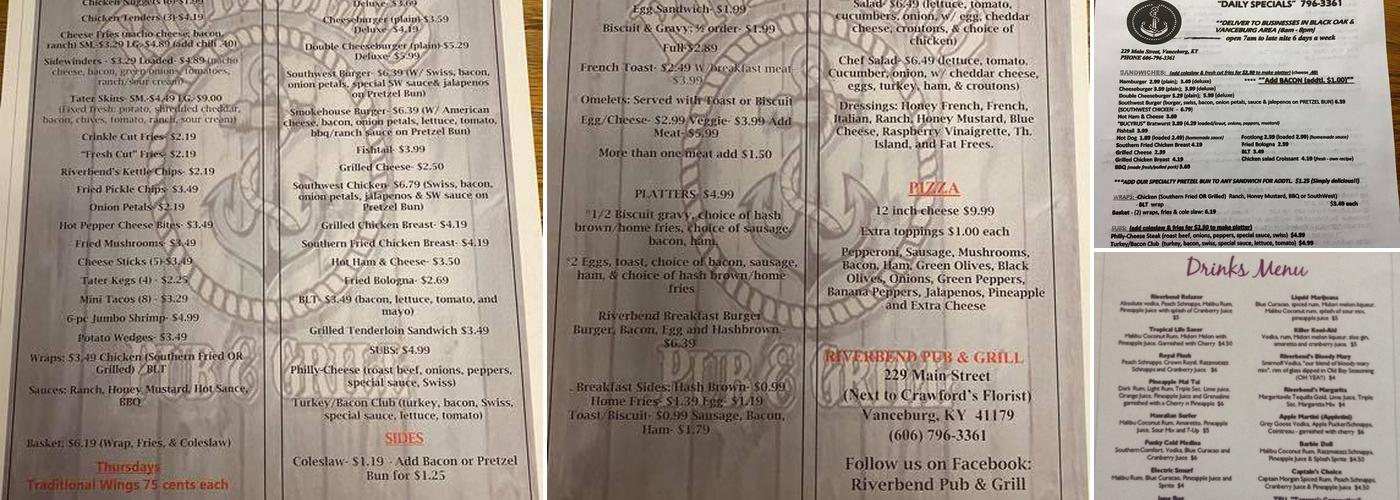 Chicken Nuggets (6)-$1.99
Chicken Tenders (3)-$4.19
Cheese Fries (nacho cheese, bacon,
ranch) SM-$3.29 LG-$4.89 (add chili .40)
Sidewinders - $3.29 Loaded- $4.89 (nacho
cheese, bacon, green onions, tomatoes,
ranch/sour cream)
Tater Skins- SM-$4.49 LG-$9.00
(Fixed fresh: potato, shredded cheddar,
bacon, chives, tomato, ranch, sour cream)
Crinkle Cut Fries- $2.19
"Fresh Cut" Fries- $2.19
Riverbend's Kettle Chips- $2.19
Fried Pickle Chips- $3.49
Onion Petals- $2.19
Hot Pepper Cheese Bites- $3.49
Fried Mushrooms- $3.49
Cheese Sticks (5)-$3.49
Tater Kegs (4) - $2.25
Mini Tacos (8) - $3.29
6-pc Jumbo Shrimp- $4.99
Potato Wedges- $3.49
Wraps: $3.49 Chicken (Southern Fried OR
Grilled) / BLT
Sauces: Ranch, Honey Mustard, Hot Sauce,
BBQ
Basket: $6.19 (Wrap, Fries, & Coleslaw)
Thursdays
Traditional Wings 75 cents each
Deluxe- $3.69
Cheeseburger (plain)-$3.59
Deluxe- $4.19
Double Cheeseburger (plain)-$5.29
Deluxe- $5.99
Southwest Burger- $6.39 (W/ Swiss, bacon,
onion petals, special SW sauce & jalapenos
on Pretzel Bun)
Smokehouse Burger- $6.39 (W/ American
cheese, bacon, onion petals, lettuce, tomato,
bbq/ranch sauce on Pretzel Bun)
Fishtail- $3.99
Grilled Cheese- $2.50
Southwest Chicken- $6.79 (Swiss, bacon,
onion petals, jalapenos & SW sauce on
Pretzel Bun)
Grilled Chicken Breast- $4.19
Southern Fried Chicken Breast- $4.19
Hot Ham & Cheese- $3.50
Fried Bologna- $2.69
BLT- $3.49 (bacon, lettuce, tomato, and
mayo)
Grilled Tenderloin Sandwich $3.49
SUBS: $4.99
Philly-Cheese (roast beef, onions, peppers,
special sauce, Swiss)
Turkey/Bacon Club (turkey, bacon, Swiss,
special sauce, lettuce, tomato)
SIDES
Coleslaw- $1.19 - Add Bacon or Pretzel
Bun for $1.25
PUB & GRILL
Egg Sandwich- $1.99
Biscuit & Gravy: ½ order- $1.99
Full-$2.89
French Toast- $2.49 W/ breakfast meat-
$3.99
Omelets: Served with Toast or Biscuit
Egg/Cheese- $2.99 Veggie- $3.99 Add
Meat-$5.99
More than one meat add $1.50
PLATTERS- $4.99
*1/2 Biscuit gravy, choice of hash
brown/home fries, choice of sausage,
bacon, ham.
*2 Eggs, toast, choice of bacon, sausage,
ham, & choice of hash brown/home
fries
Riverbend Breakfast Burger
Burger, Bacon, Egg and Hashbrown -
$6.39
Breakfast Sides: Hash Brown- $0.99
Home Fries- $1.39 Egg- $1.19
Toast/Biscuit- $0.99 Sausage, Bacon,
Ham- $1.79
Salad- $6.49 (lettuce, tomato,
cucumbers, onion, w/ egg, cheddar
cheese, croutons, & choice of
chicken)
Chef Salad- $6.49 (lettuce, tomato.
Cucumber, onion, w/ cheddar cheese,
eggs, turkey, ham, & croutons)
Dressings: Honey French, French,
Italian, Ranch, Honey Mustard, Blue
Cheese, Raspberry Vinaigrette, Th.
Island, and Fat Frees.
PIZZA
12 inch cheese $9.99
Extra toppings $1.00 each
Pepperoni, Sausage, Mushrooms,
Bacon, Ham, Green Olives, Black
Olives, Onions, Green Peppers,
Banana Peppers, Jalapenos, Pineapple
and Extra Cheese
RIVERBEND PUB & GRILL
229 Main Street
(Next to Crawford's Florist)
Vanceburg, KY 41179
(606) 796-3361
Follow us on Facebook:
Riverbend Pub & Grill
PUB & GRILL
"DAILY SPECIALS" 796-3361
**DELIVER TO BUSINESSES IN BLACK OAK &
VANCEBURG AREA (8am - 8pm)
open 7am to late nite 6 days a week
229 Main Street, Vanceburg, KY
PHONE 606-796-3361
SANDWICHES: (add coleslaw & fresh cut fries for $2.50 to make platter) (cheese .40)
Hamburger 2.99 (plain); 3.49 (deluxe)
**** ""Add BACON (addtl. $1.00)""
Cheeseburger 3.59 (plain); 3.99 (deluxe)
Double Cheeseburger 5.29 (plain); 5.99 (deluxe)
Southwest Burger (burger, swiss, bacon, onion petals, sauce & jalapenos on PRETZEL BUN) 6.39
(SOUTHWEST CHICKEN - 6.79)
Hot Ham & Cheese 3.69
"BUCYRUS" Bratwurst 3.89 (4.29 loaded/kraut, onions, peppers, mustard)
Fishtail 3.99
Hot Dog 1.89 (loaded 2.49) (homemade sauce)
Footlong 2.39 (loaded 2.99) (homemade sauce)
Southern Fried Chicken Breast 4.19
Fried Bologna 2.59
Grilled Cheese 2.39
BLT 3.49
Grilled Chicken Breast 4.19
Chicken salad Croissant 4.19 (fresh - own recipe)
BBQ (made fresh/pulled pork) 3.69
****ADD OUR SPECIALTY PRETZEL BUN TO ANY SANDWICH FOR ADDTL. $1.25 (Simply delicious!!)
WRAPS: -Chicken (Southern Fried OR Grilled) Ranch, Honey Mustard, BBQ or SouthWest)
- BLT wrap $3.49 each
Basket - (2) wraps, fries & cole slaw: 6.19
SUBS: (add coleslaw & fries for $2.50 to make platter)
Philly-Cheese Steak (roast beef, onions, peppers, special sauce, swiss) $4.99
Turkey/Bacon Club (turkey, bacon, swiss, special sauce, lettuce, tomato) $4.99
Drinks Menu
Riverbend Relaxer
Absolute vodka, Peach Schnapps, Malibu Rum,
Pineapple Juice with splash of Cranberry Juice
$5
Tropical Life Saver
Malibu Coconut Rum, Midori Melon with
Pineapple Juice. Garnished with Cherry $4.50
Royal Flush
Peach Schnapps, Crown Royal, Razzmatazz
Schnapps and Cranberry Juice $6
Pineapple Mai Tai
Dark Rum, Light Rum, Triple Sec, Lime Juice,
Orange Juice, Pineapple Juice and Grenadine
garnished with a Cherry n Pineapple $6
Hawaiian Surfer
Malibu Coconut Rum, Amaretto, Pineapple
Juice, Sour Mix and 7-Up $5
Funky Cold Medina
Southern Comfort, Vodka, Blue Curacao and
Cranberry Juice $6
Electric Smurf
Malibu Rum, Blue Curacao, Pineapple Juice and
Sprite $4
Liquid Marijuana
Blue Curacao, spiced rum, Midori melon liqueur,
Malibu Coconut rum, splash of sour mix,
pineapple juice $5
Killer Kool-Aid
Vodka, rum, Midori melon liqueur, sloe gin,
amaretto and cranberry juice. $5
Riverbend's Bloody Mary
Smirnoff Vodka, "our blend of bloody mary
mix", rim of glass dipped in Old Bay Seasoning
(OH YEA!!) $4
Riverbend's Margarita
Margaritaville Tequila Gold, Lime Juice, Triple
Sec, Margarita Mix $4
Apple Martini (Appletini)
Grey Goose Vodka, Apple Pucker/Schnapps,
Cointreau - garnished with cherry $6
Barbie Doll
Malibu Coconut Rum, Razzmatazz Schnapps,
Pineapple Juice & Splash Sprite $4.50
Captain's Choice
Captain Morgan Spiced Rum, Peach Schnapps,
Cranberry Juice & Pineapple Juice $4.50